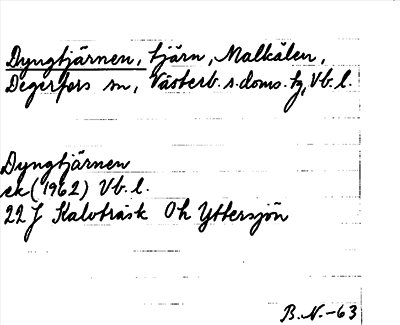 Dyngtjärnen, tjärn, Malkälen,
Degerfors sn, Västerb. s. doms. tg, Vb. l.
Dyngtjärnen
ek (1962) Vb. l.
22 J Kalvträsk 0h Yttersjön
B. N. -63